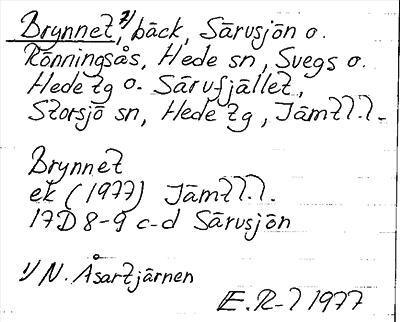 Brynnet, 1) bäck, Särvsjön o.
Rönningsås, Hede sn, Svegs o.
Hede tg o. Särvfjället,
Storsjö sn, Hede tg, Jämtl.l.
Brynnet
ek (1977) Jämtl.l.
17D 8-9 c-d Särvsjön
1) N. Åsartjärnen
E.R-l 1977